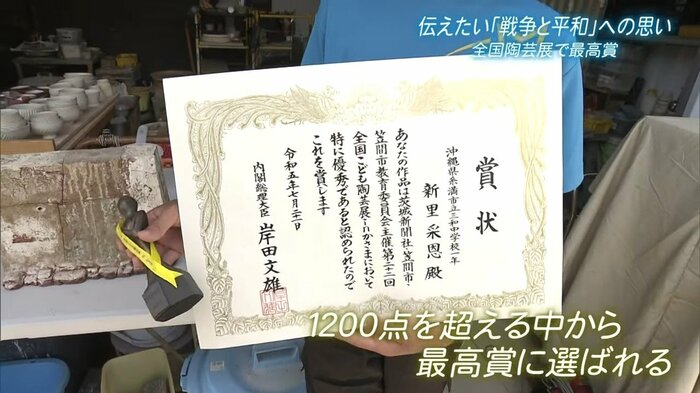 伝えたい「戦争と平和」への思い
全国陶芸展で最高賞
賞状
沖縄県糸満市立三和中学校一年
新里采恩殿
あなたの作品は茨城新聞社・笠間市・
笠間市教育委員会主催第二十二回
全国こども陶芸展inかさまにおいて
特に優秀であると認められたので
これを賞します
令和五年七月二十一日
内閣総理大臣 岸田文雄
1200点を超える中から
最高賞に選ばれる